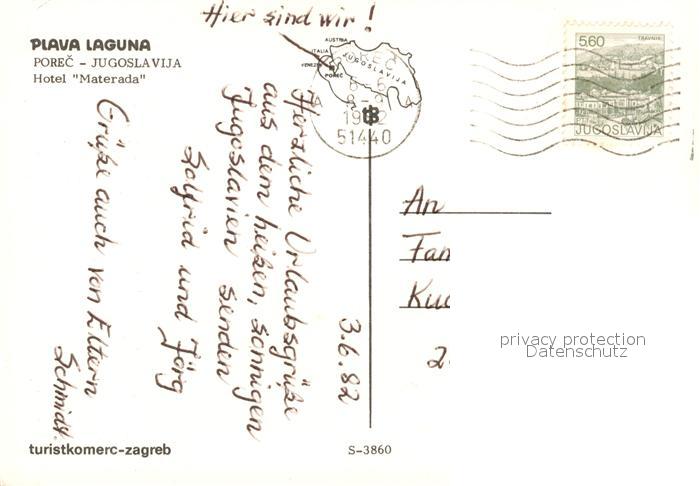 Hier sind wir!
PLAVA LAGUNA
POREČ – JUGOSLAVIJA
Hotel "Materada"
AUSTRIA
ITALIA
VENEZIA
POREČ
JUGOSLAVIJA
1982
51440
5.60
TRAVNIK
JUGOSLAVIJA
3.6.82
Herzliche Urlaubsgrüße
aus dem heißen, sonnigen
Jugoslavien senden
Solfrid und Jörg
Grüße auch von Eltern
Schmidt.
An
Fam
Kuc
2
privacy protection
Datenschutz
turistkomerc-zagreb
S-3860